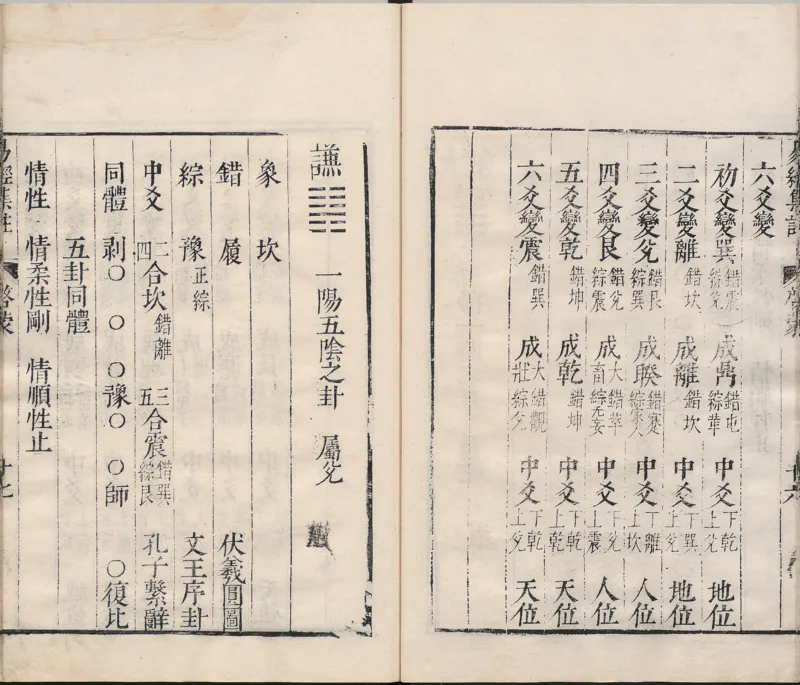 六爻變
初爻變巽錯震綜兌 成鼎錯屯綜革 中爻下乾上兌 地位
二爻變離錯坎 成離錯坎 中爻下巽上兌 地位
三爻變兌錯艮綜巽 成睽錯蹇綜家人 中爻下離上坎 人位
四爻變艮錯兌綜震 成大畜錯萃綜无妄 中爻下兌上震 人位
五爻變乾錯坤 成乾錯坤 中爻下乾上乾 天位
六爻變震錯巽 成大壯錯觀綜兌 中爻下乾上兌 天位
謙䷎ 一陽五陰之卦 屬兌
象 坎
錯 履 伏羲圓圖
綜 豫正綜 文王序卦
中爻 二四合坎錯離 三五合震錯巽綜艮 孔子繫辭
同體 剥○ ○ ○豫○ ○師 ○復比
五卦同體
情性 情柔性剛 情順性止